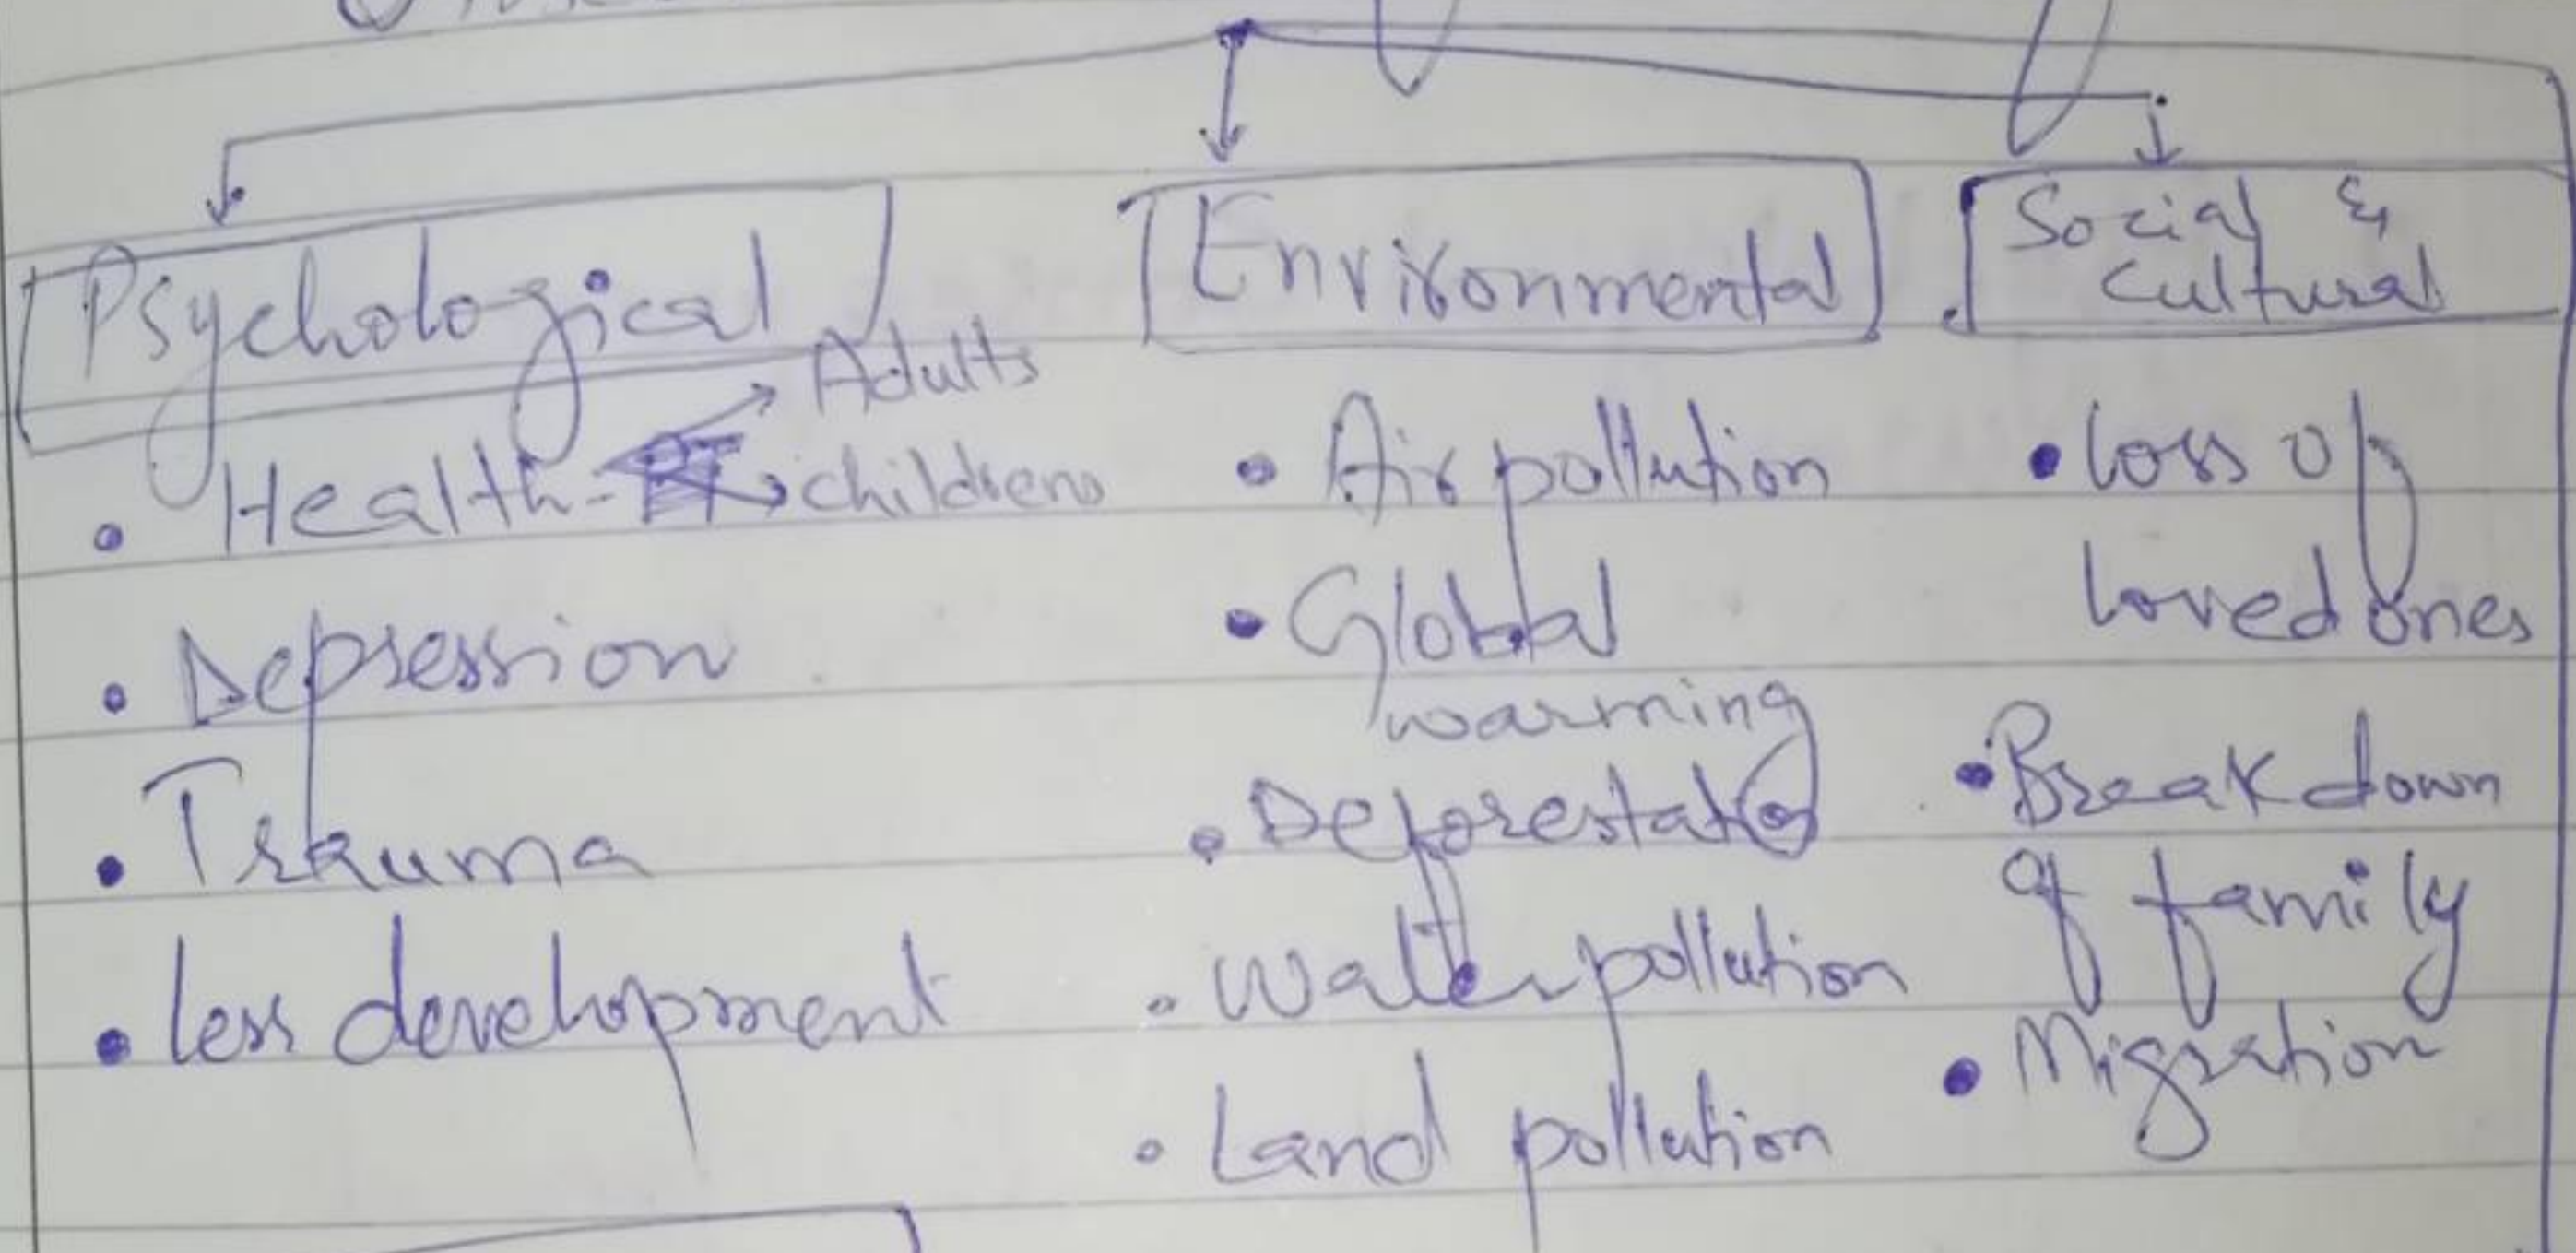 Psychological
Adults
Health - childrens
Depression
Trauma
less development
Envrironmental
Air pollution
Global
warming
Water pollution
Land pollution
Social &
Cultural
loss of
loved ones
Breakdown
of family
Migration